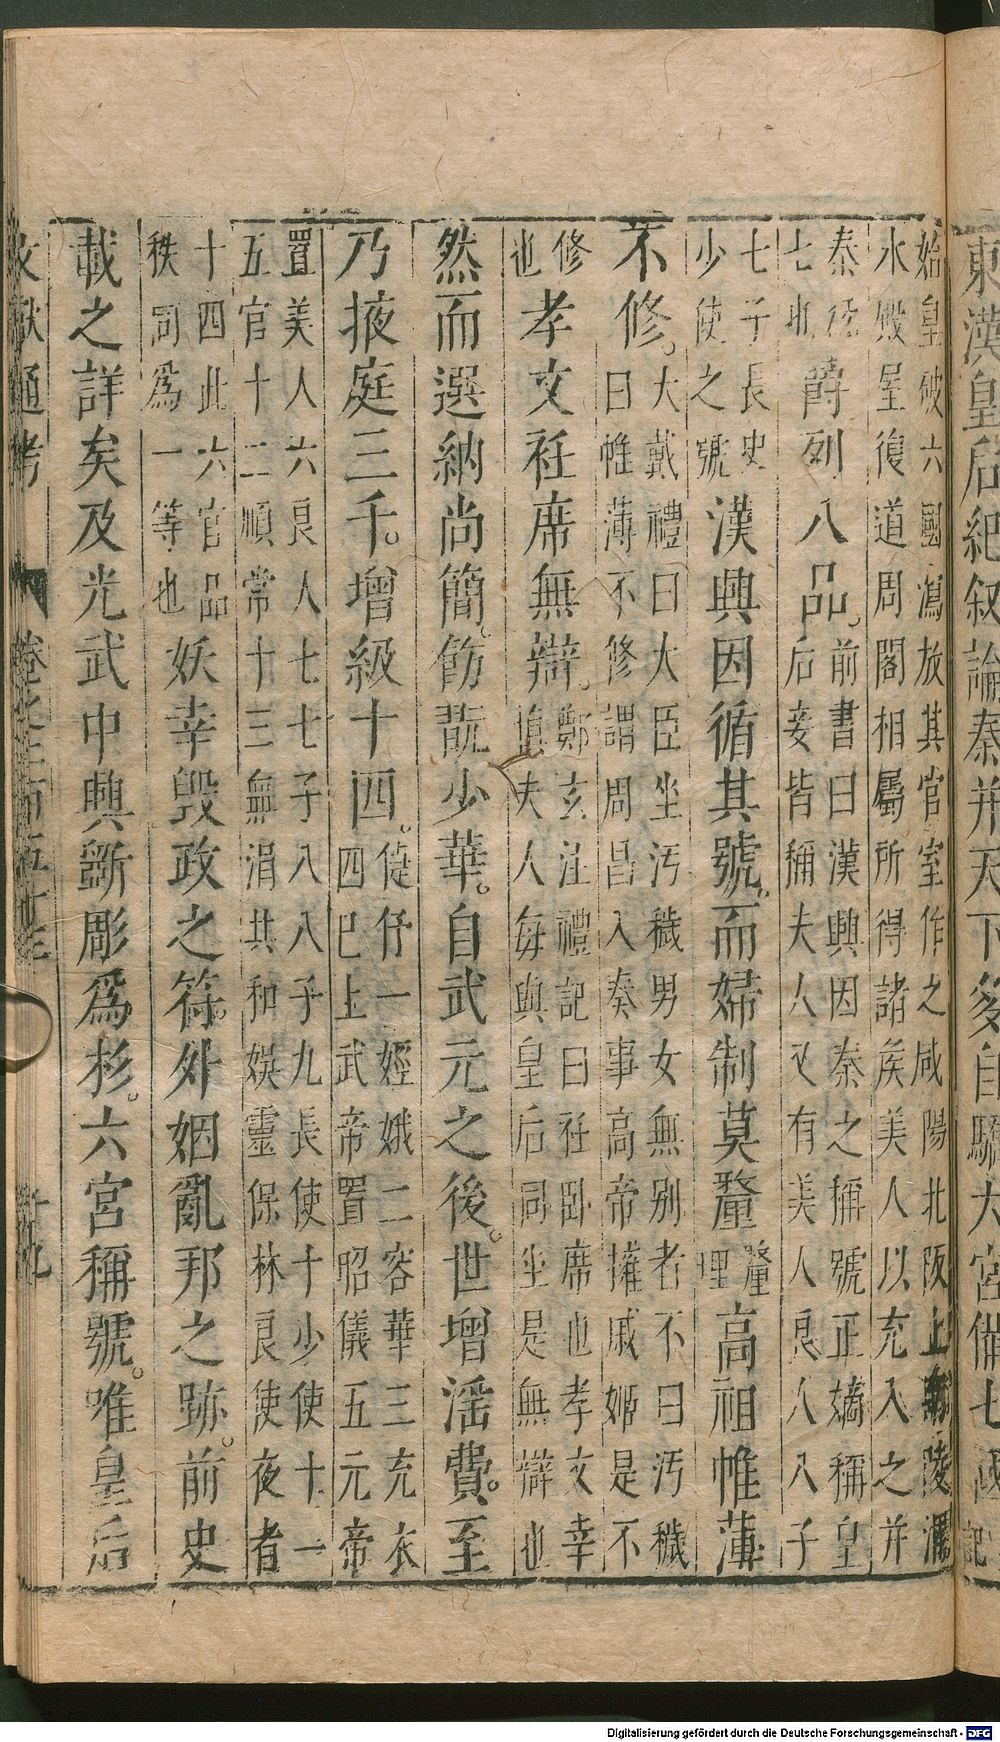 東漢皇后紀叙論秦并天下多自驕大宮備七國記
始皇破六國瀉放其宮室作之咸陽北阪上
陵瀰
水殿屋復道周閣相屬所得諸侯美人以充入之并
秦
七
爵列八品
前書曰漢興因秦之稱號正嫡稱皇
后妾皆稱夫人又有美人良人八子
七子長史
少使之號
漢興因循其號而婦制莫釐
釐
理
高祖帷薄
不修
大戴禮曰大臣坐汚穢男女無别者不曰汚穢
曰帷薄不修謂周昌入奏事高帝擁戚姬是不
修
也
孝文衽席無辯
鄭玄注禮記曰衽卧席也孝文幸
夫人每與皇后同坐是無辯也
然而選納尚簡飭翫少華自武元之後世增淫費至
乃掖庭三千增級十四
倢伃一娙娥二容華三充衣
四巳上武帝置昭儀五元帝
置美人六良人七七子八八子九長使十少使十一
五官十二順常十三無涓共和娛靈保林良使夜者
十四此六官品
秩同爲一等也
妖幸毁政之符外姻亂邦之跡前史
載之詳矣及光武中興斲彫爲朴六宮稱號唯皇后
文獻通考